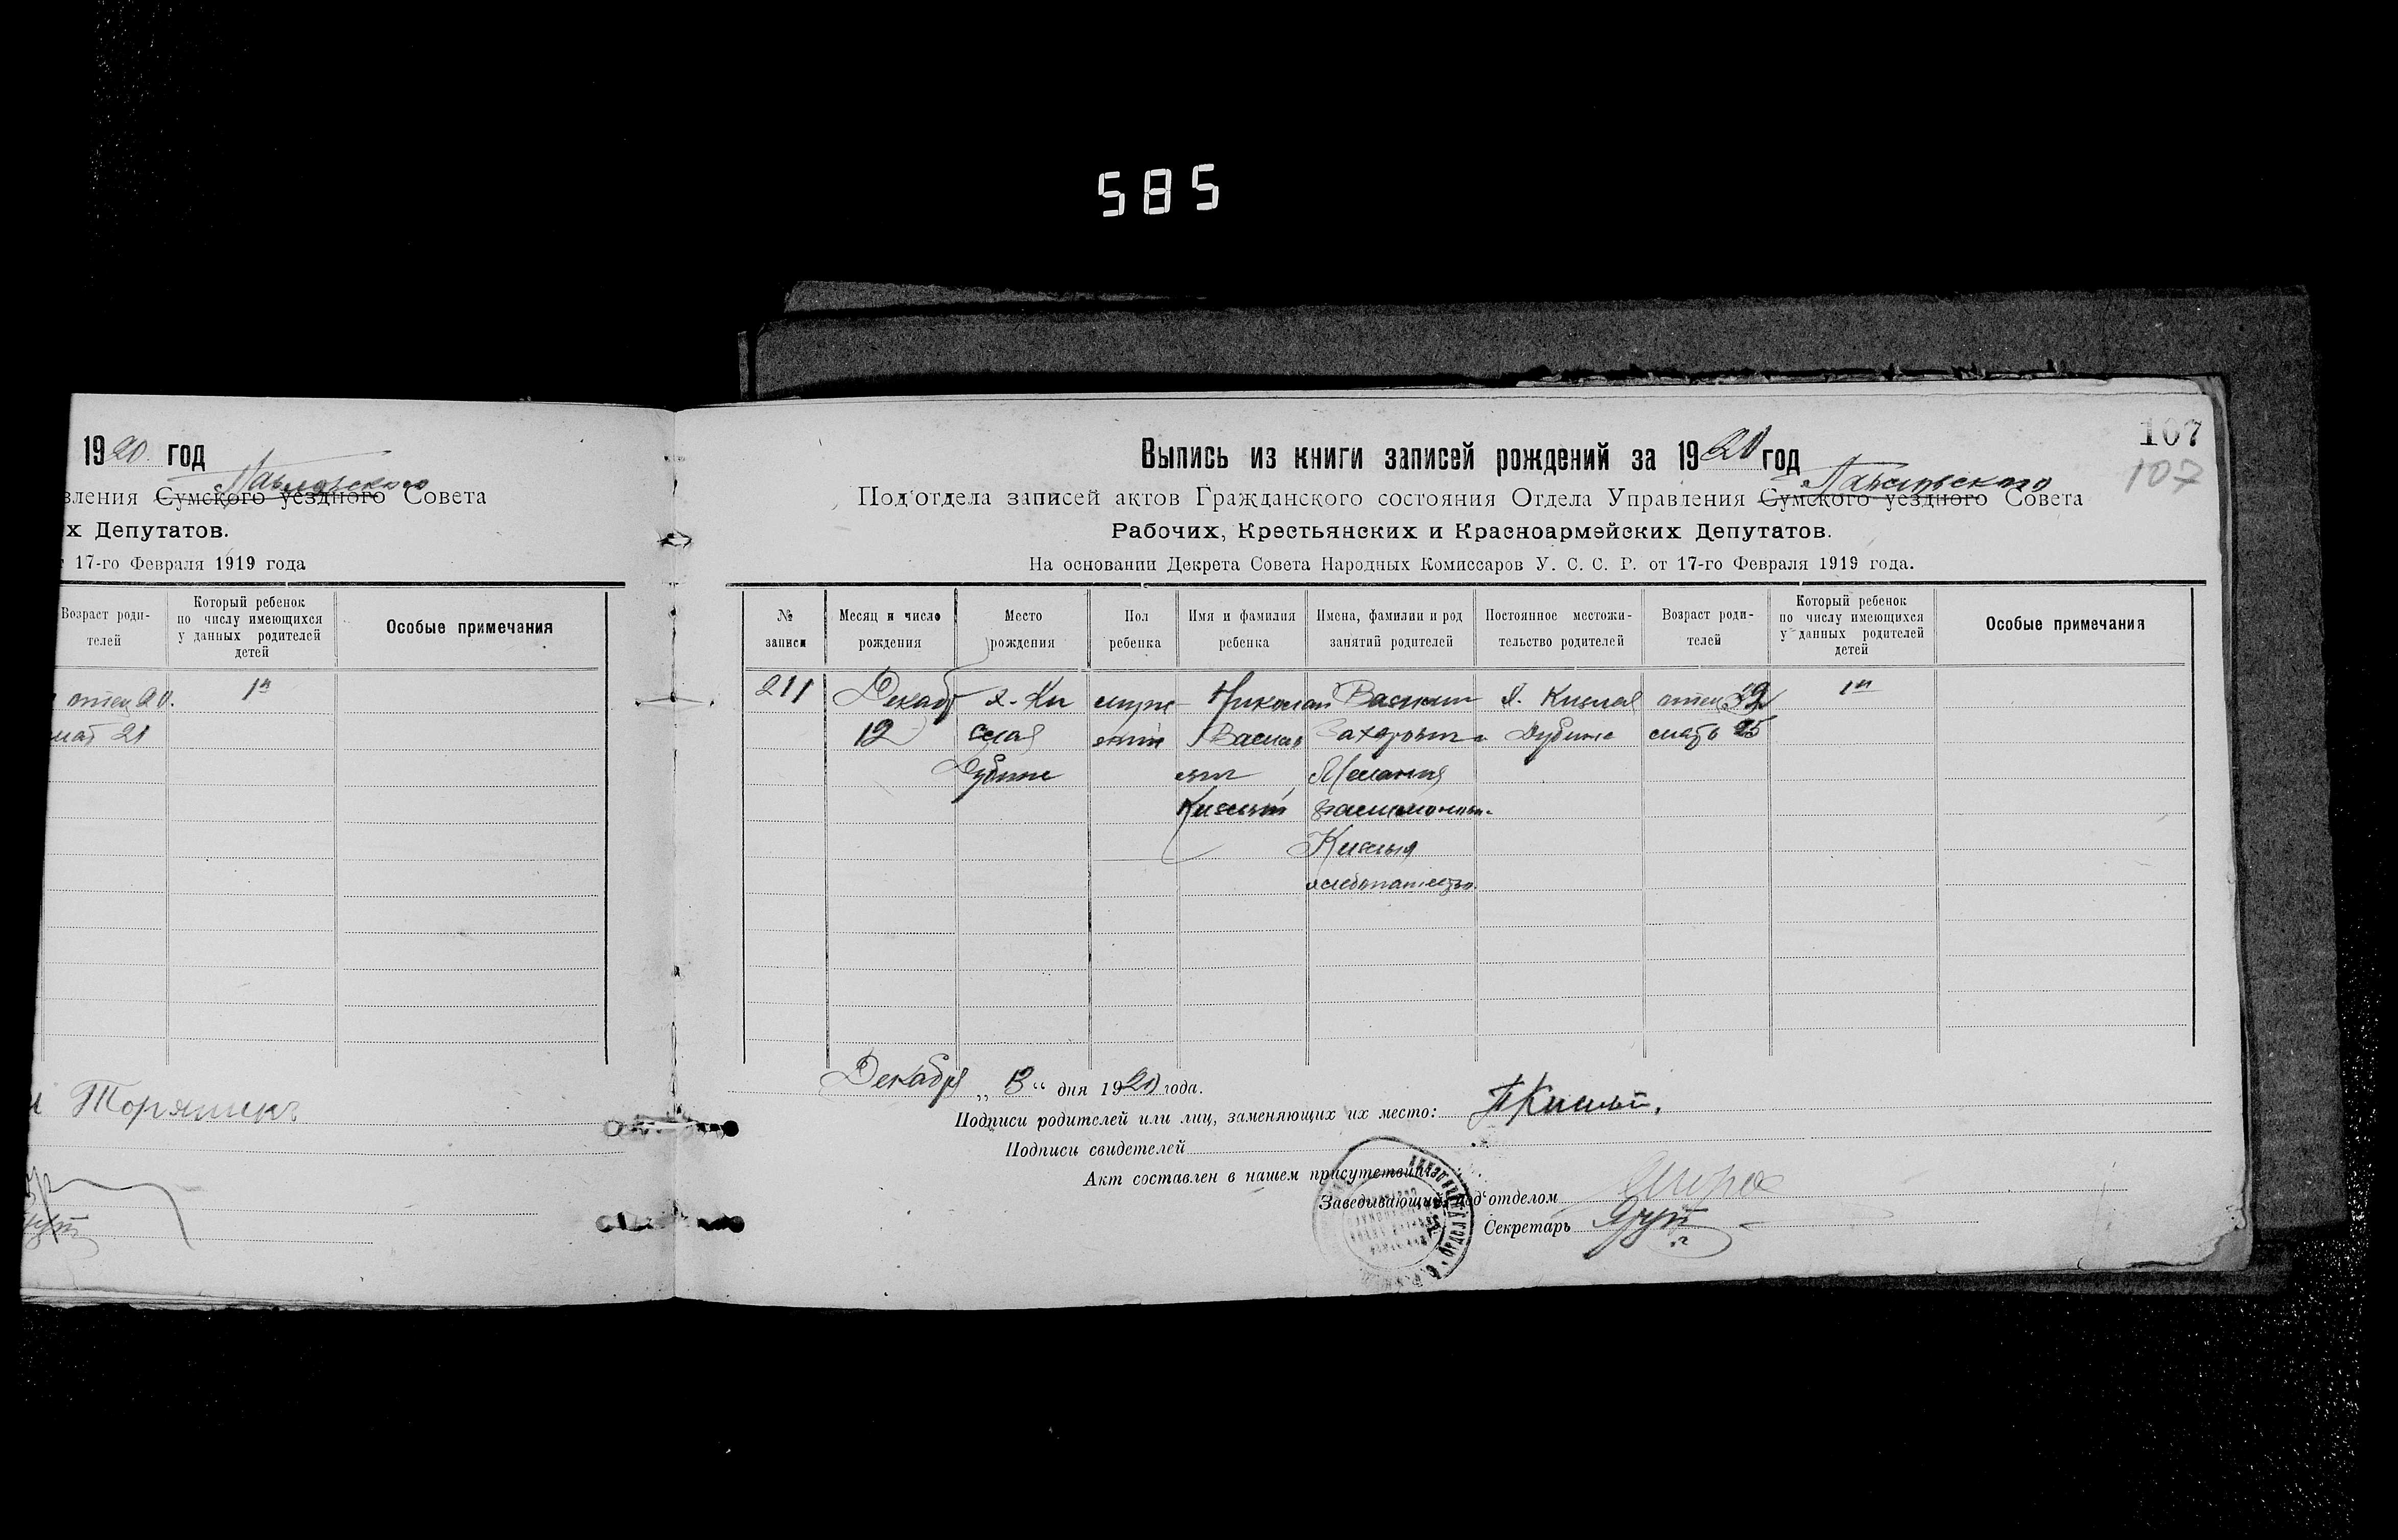 585
1920 год
Павловского
вления Сумского уездного Совета
х Депутатов.
17-го Февраля 1919 года
Возраст роди-
телей
Который ребенок
по числу имеющихся
у данных родителей
детей
Особые примечания
отец 20.
1й
мат 21
107
107
Выпись из книги записей рождений за 1920 год
Павловского
Под'отдела записей актов Гражданского состояния Отдела Управления Сумского уездного Совета
Рабочих, Крестьянских и Красноармейских Депутатов.
На основании Декрета Совета Народных Комиссаров У. С. С. Р. от 17-го Февраля 1919 года.
№
записи
Месяц и число
рождения
Место
рождения
Пол
ребенка
Имя и фамилия
ребенка
Имена, фамилии и род
занятий родителей
Постоянное местожи-
тельство родителей
Возраст роди-
телей
Который ребенок
по числу имеющихся
у данных родителей
детей
Особые примечания
211 Декаб х. Ки муж Николай Василий х. Кислая отец 1й
12 слая Василь Захарович Дубина мать 25
Дубина
Кислый
Кислыя
хлебопашество.
Декабря „13“ дня 1920 года.
Подписи родителей или лиц, заменяющих их место: Кислый.
Подписи свидетелей
Акт составлен в нашем присутствии:
Заведывающий под'отделом
Секретарь